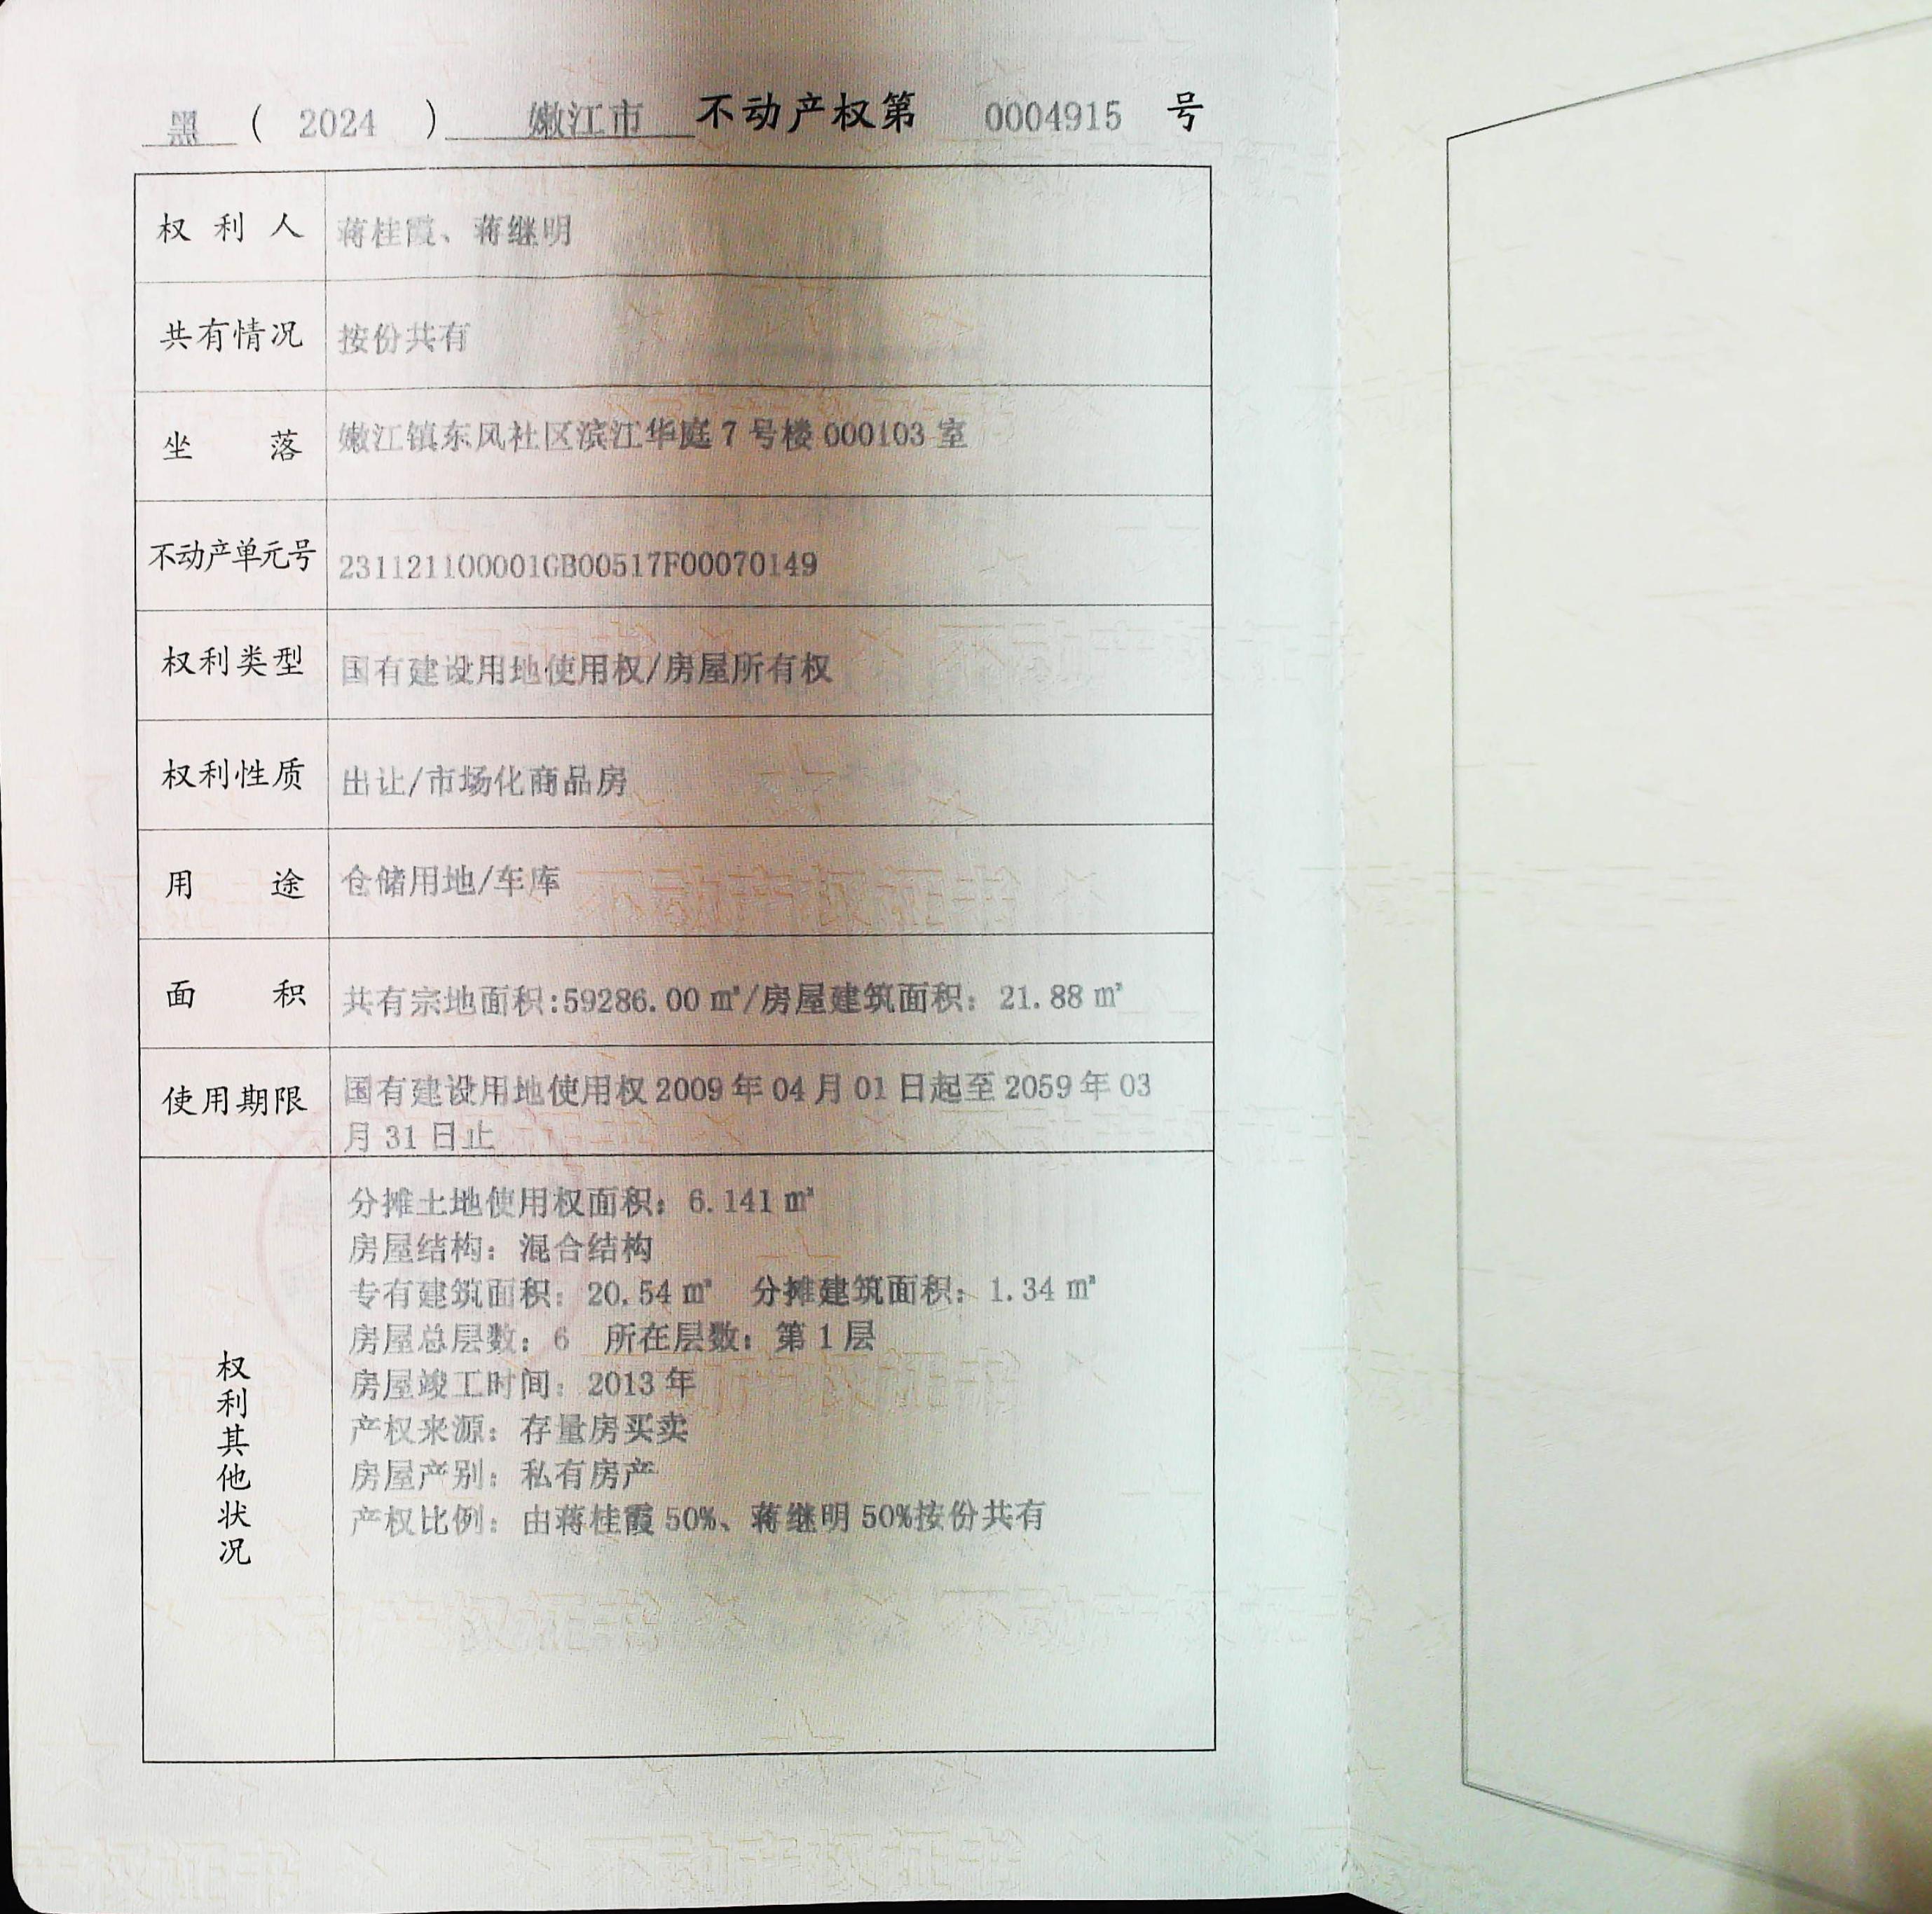 黑 ( 2024 ) 嫩江市 不动产权第 0004915 号
权利人 蒋桂霞、蒋继明
共有情况 按份共有
坐落 嫩江镇东风社区滨江华庭 7 号楼 000103 室
不动产单元号 231121100001GB00517F00070149
权利类型 国有建设用地使用权/房屋所有权
权利性质 出让/市场化商品房
用途 仓储用地/车库
面积 共有宗地面积:59286.00 ㎡/房屋建筑面积：21.88 ㎡
使用期限 国有建设用地使用权 2009 年 04 月 01 日起至 2059 年 03
月 31 日止
权利其他状况
分摊土地使用权面积：6.141 ㎡
房屋结构：混合结构
专有建筑面积：20.54 ㎡ 分摊建筑面积：1.34 ㎡
房屋总层数：6 所在层数：第 1 层
房屋竣工时间：2013 年
产权来源：存量房买卖
房屋产别：私有房产
产权比例：由蒋桂霞 50%、蒋继明 50%按份共有